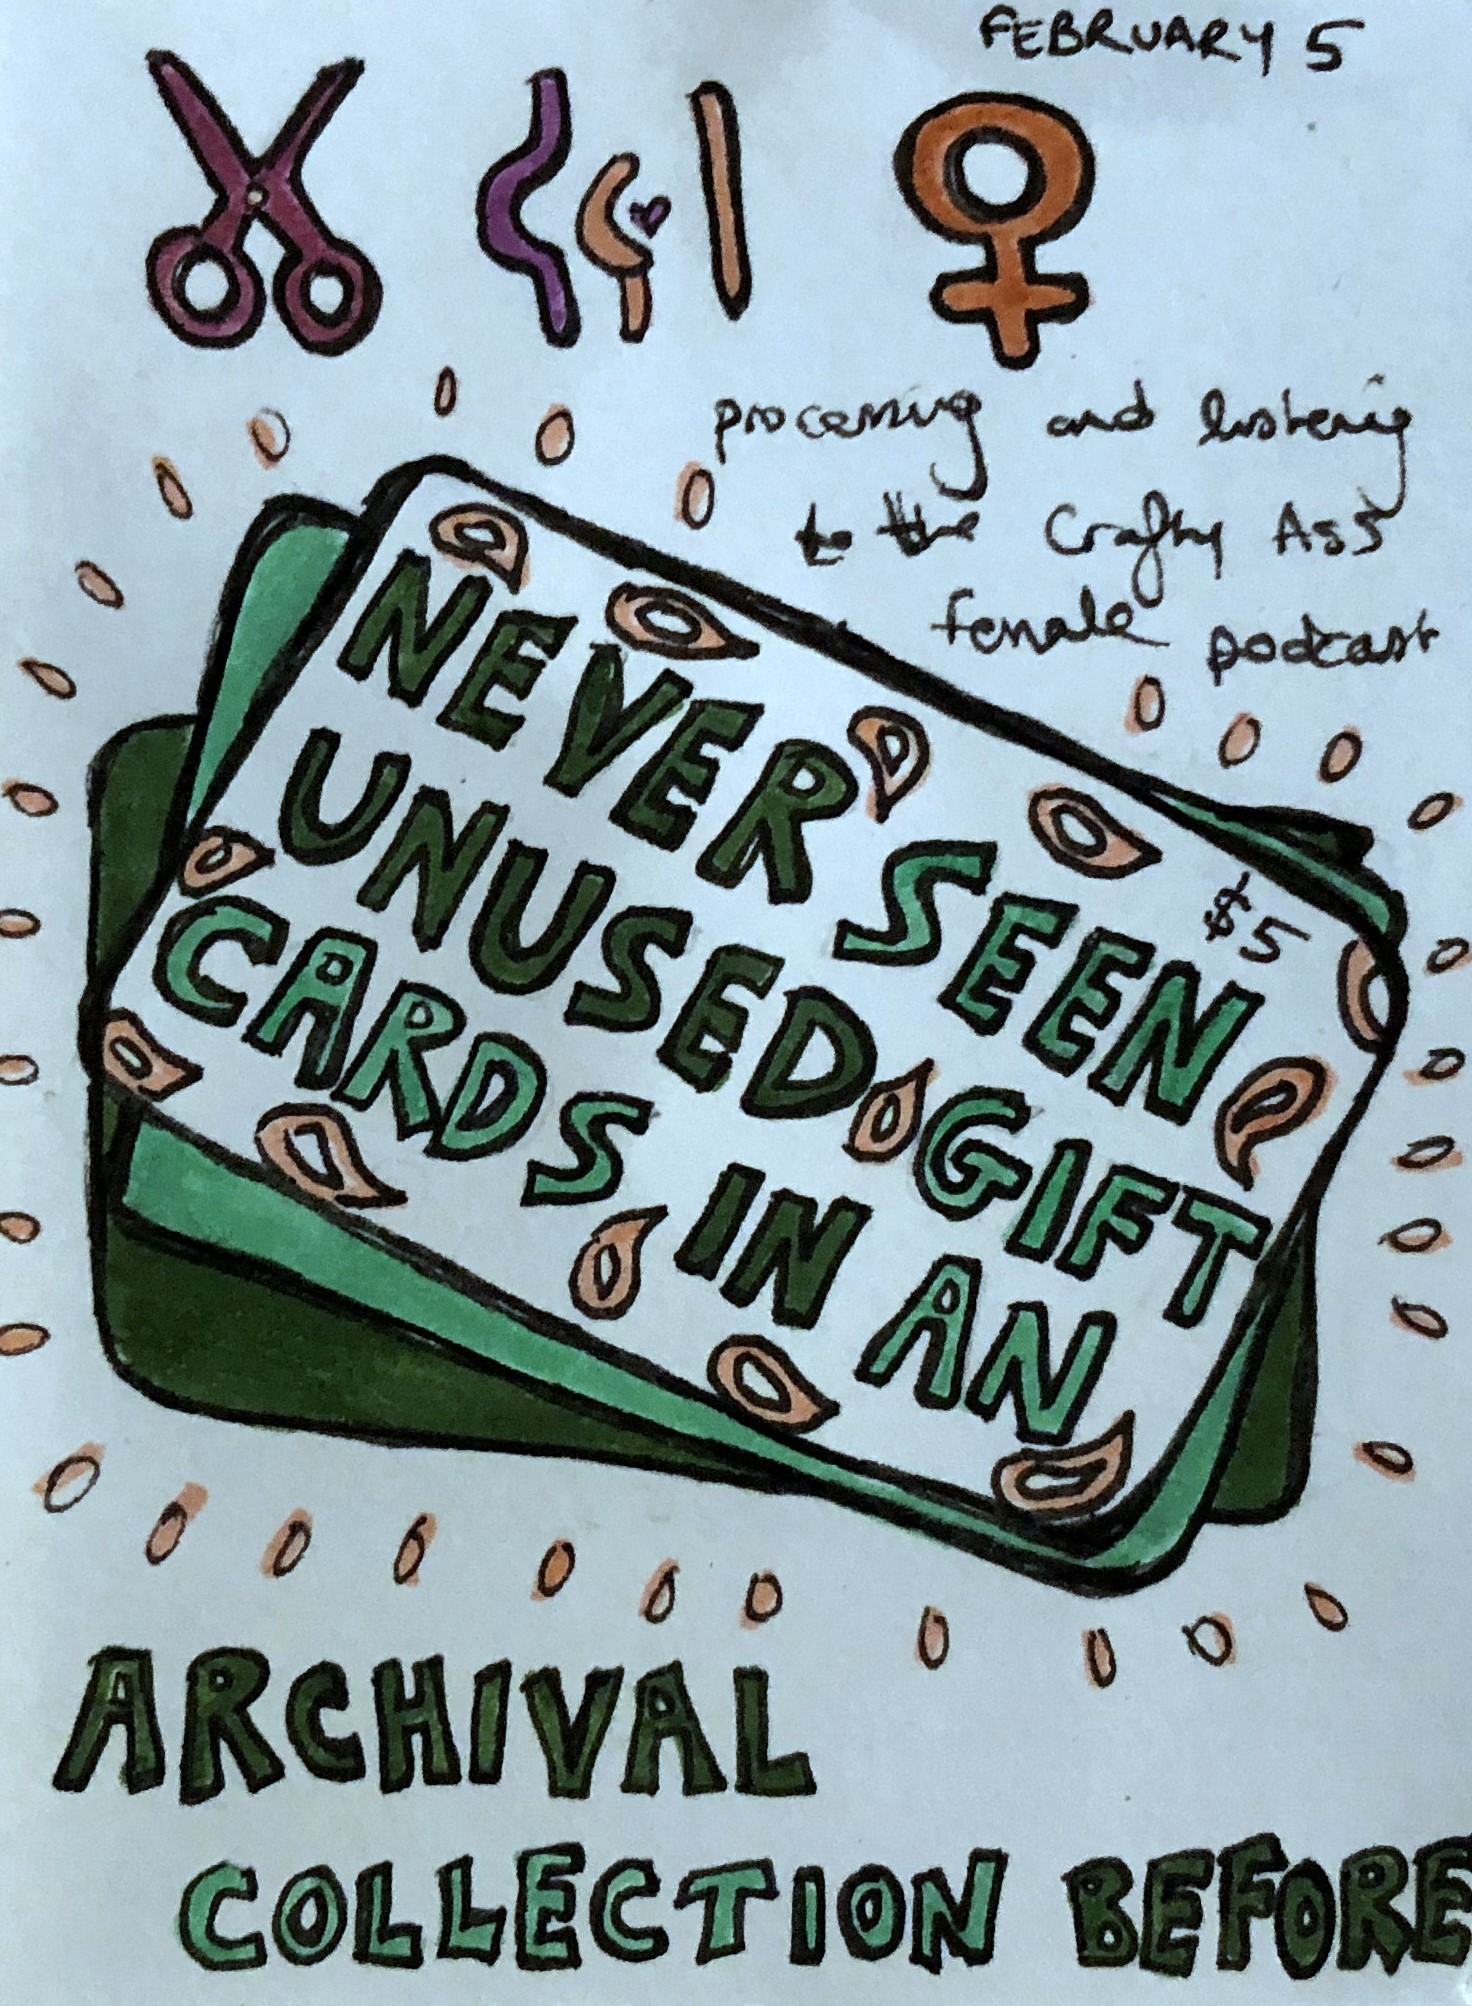 FEBRUARY 5
processing and listening
to the Crafty Ass
female podcast
NEVER SEEN
$5
UNUSED GIFT
CARDS IN AN
ARCHIVAL
COLLECTION BEFORE